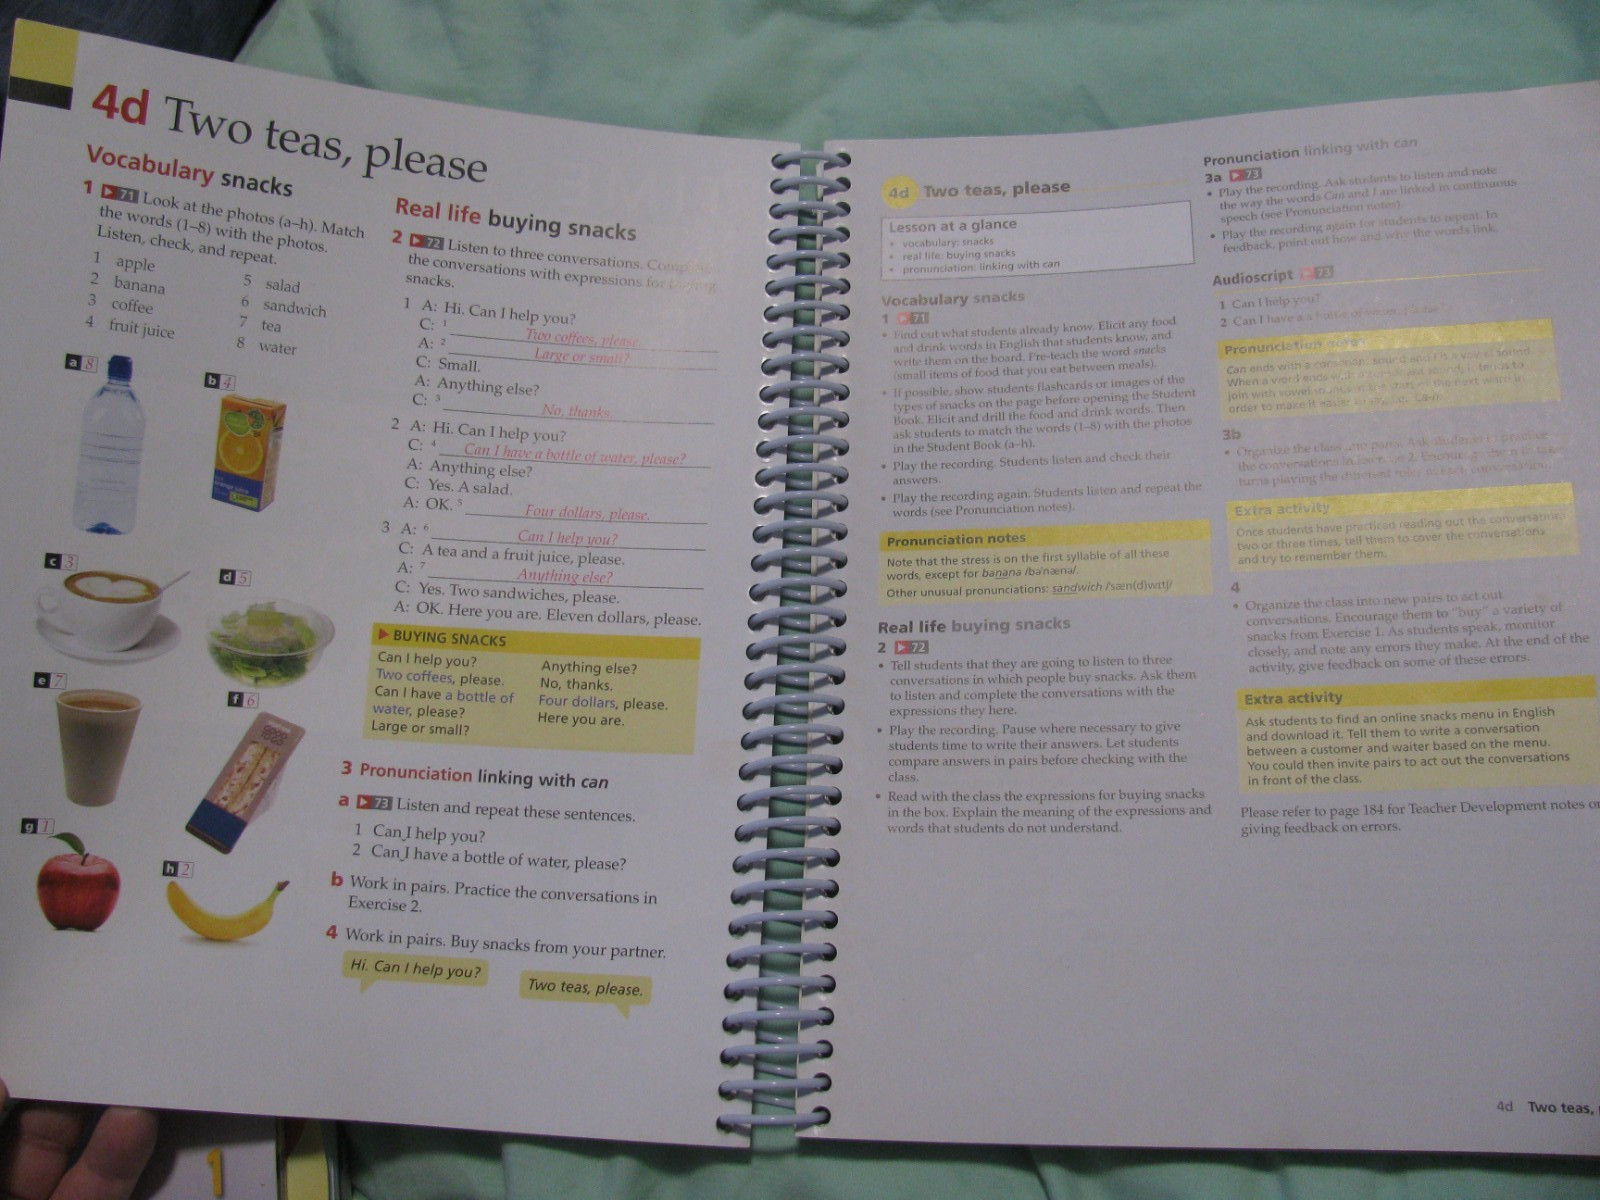 4d Two teas, please
Vocabulary snacks
1 ▶ 71 Look at the photos (a–h). Match
the words (1–8) with the photos.
Listen, check, and repeat.
1 apple
2 banana
3 coffee
4 fruit juice
5 salad
6 sandwich
7 tea
8 water
a 8
b 4
c 3
d 5
e 7
f 6
g 1
h 2
Real life buying snacks
2 ▶ 72 Listen to three conversations. Complete
the conversations with expressions for buying
snacks.
1 A: Hi. Can I help you?
C: 1 Two coffees, please.
A: 2 Large or small?
C: Small.
A: Anything else?
C: 3 No, thanks.
2 A: Hi. Can I help you?
C: 4 Can I have a bottle of water, please?
A: Anything else?
C: Yes. A salad.
A: OK. 5 Four dollars, please.
3 A: 6 Can I help you?
C: A tea and a fruit juice, please.
A: 7 Anything else?
C: Yes. Two sandwiches, please.
A: OK. Here you are. Eleven dollars, please.
▶ BUYING SNACKS
Can I help you?
Two coffees, please.
Can I have a bottle of
water, please?
Large or small?
Anything else?
No, thanks.
Four dollars, please.
Here you are.
3 Pronunciation linking with can
a ▶ 73 Listen and repeat these sentences.
1 Can I help you?
2 Can I have a bottle of water, please?
b Work in pairs. Practice the conversations in
Exercise 2.
4 Work in pairs. Buy snacks from your partner.
Hi. Can I help you?
Two teas, please.
4d Two teas, please
Lesson at a glance
• vocabulary: snacks
• real life: buying snacks
• pronunciation: linking with can
Vocabulary snacks
1 ▶ 71
• Find out what students already know. Elicit any food
and drink words in English that students know, and
write them on the board. Pre-teach the word snacks
(small items of food that you eat between meals).
• If possible, show students flashcards or images of the
types of snacks on the page before opening the Student
Book. Elicit and drill the food and drink words. Then
ask students to match the words (1–8) with the photos
in the Student Book (a–h).
• Play the recording. Students listen and check their
answers.
• Play the recording again. Students listen and repeat the
words (see Pronunciation notes).
Pronunciation notes
Note that the stress is on the first syllable of all these
words, except for banana /bəˈnænə/.
Other unusual pronunciations: sandwich /ˈsæn(d)wɪtʃ/
Real life buying snacks
2 ▶ 72
• Tell students that they are going to listen to three
conversations in which people buy snacks. Ask them
to listen and complete the conversations with the
expressions they here.
• Play the recording. Pause where necessary to give
students time to write their answers. Let students
compare answers in pairs before checking with the
class.
• Read with the class the expressions for buying snacks
in the box. Explain the meaning of the expressions and
words that students do not understand.
Pronunciation linking with can
3a ▶ 73
• Play the recording. Ask students to listen and note
the way the words Can and I are linked in continuous
speech (see Pronunciation notes).
• Play the recording again for students to repeat. In
feedback, point out how and why the words link.
Audioscript ▶ 73
1 Can I help you?
2 Can I have a bottle of water, please?
Pronunciation notes
Can ends with a consonant sound and I is a vowel sound.
When a word ends with a consonant sound,
join with vowel the start of the next word in
order to make it easier
3b
• Organize the class into pairs. Ask students to practice
the conversations in
turns playing the different
Extra activity
Once students have practiced reading out the conversations
two or three times, tell them to cover the conversations
and try to remember them.
4
• Organize the class into new pairs to act out
conversations. Encourage them to "buy" a variety of
snacks from Exercise 1. As students speak, monitor
closely, and note any errors they make. At the end of the
activity, give feedback on some of these errors.
Extra activity
Ask students to find an online snacks menu in English
and download it. Tell them to write a conversation
between a customer and waiter based on the menu.
You could then invite pairs to act out the conversations
in front of the class.
Please refer to page 184 for Teacher Development notes on
giving feedback on errors.
4d Two teas,
1